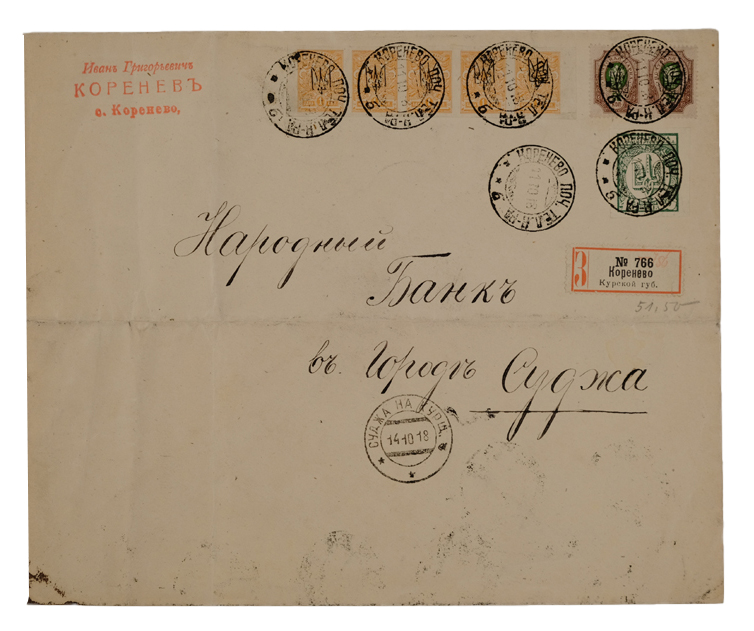 Иванъ Григорьевичъ
КОРЕНЕВЪ
с. Коренево,
КОРЕНЕВО ПОЧ. ТЕЛ. К-РА
КОРЕНЕВО ПОЧ. ТЕЛ. К-РА
КОРЕНЕВО ПОЧ. ТЕЛ. К-РА
КОРЕНЕВО ПОЧ. ТЕЛ. К-РА
КОРЕНЕВО ПОЧ. ТЕЛ. К-РА
КОРЕНЕВО ПОЧ. ТЕЛ. К-РА
11 10 18
Народный
Банкъ
З
№ 766
Коренево
Курской губ.
51,50
въ Городъ Суджа
СУДЖА НА
14·10 18